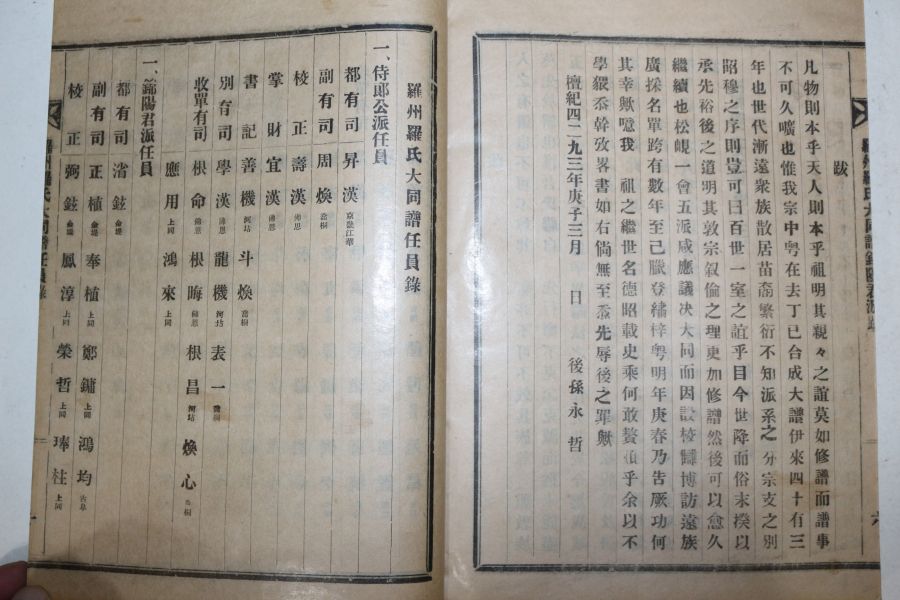 跋
凡物則本乎天人則本乎祖明其親々之誼莫如修譜而譜事
不可久曠也惟我宗中粤在去丁巳合成大譜伊來四十有三
年也世代漸遠衆族散居苗裔繁衍不知派系之分宗支之別
昭穆之序則豈可曰百世一室之誼乎目今世降而俗末揆以
承先裕後之道明其敦宗叙倫之理更加修譜然後可以愈久
繼續也松峴一會五派咸應議决大同而因設校讎博訪遠族
廣採名單跨有數年至己臘登繡梓粤明年庚春乃告厥功何
其幸歟噫我 祖之繼世名德昭載史乘何敢贅須乎余以不
學猥忝幹攷畧書如右倘無至忝先辱後之罪歟
檀紀四二九三年庚子三月 日 後孫永哲
羅州羅氏大同譜錦陽君派跋
六
羅州羅氏大同譜任員錄
一、侍郞公派任員
都有司 昇漢 京裝江華
副有司 周煥
校正 壽漢
掌財 宜漢
書記 善機 斗煥
別有司 學漢 龍機 表一
收單有司 根命 根晦 根昌 煥心
應用 上同 鴻來 上同
一、錦陽君派任員
都有司 㴑鉉 金堤
副有司 正植 金堤 奉植 上同 鄭鏞 上同 鴻均 古阜
校正 弼鉉 金堤 鳳淳 上同 榮哲 上同 琫柱 上同
羅州羅氏大同譜任員錄
一